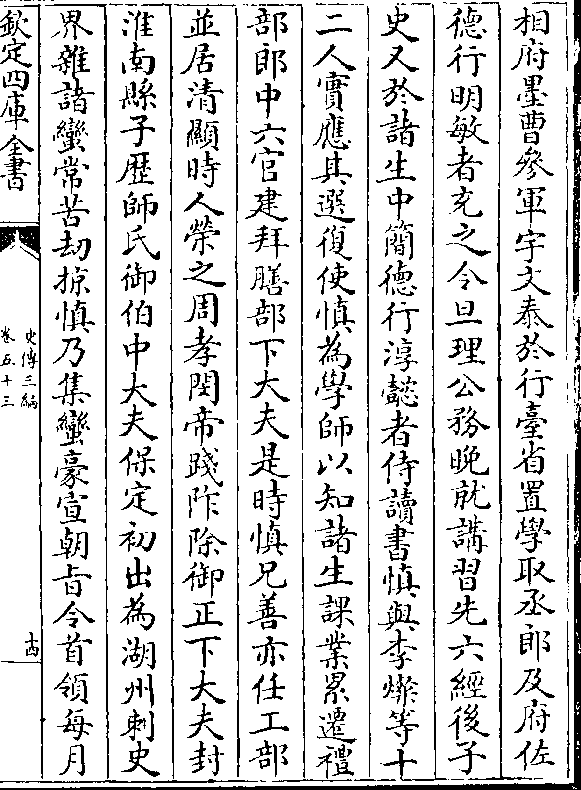 相府墨曹參軍宇文泰於行臺省置學取丞郎及府佐
德行明敏者充之令旦理公務晚就講習先六經後子
史又於諸生中簡德行淳懿者侍讀書慎與李燦等十
二人實應其選復使慎為學師以知諸生課業累遷禮
部郎中六官建拜膳部下大夫是時慎兄善亦任工部
並居清顯時人榮之周孝閔帝踐阼除御正下大夫封
淮南縣子歴師氏御伯中大夫保定初出為湖州刺史
界雜諸蠻常苦刼掠慎乃集蠻豪宣朝㫖令首領每月
欽定四庫全書
史傳三編
卷五十三
十四